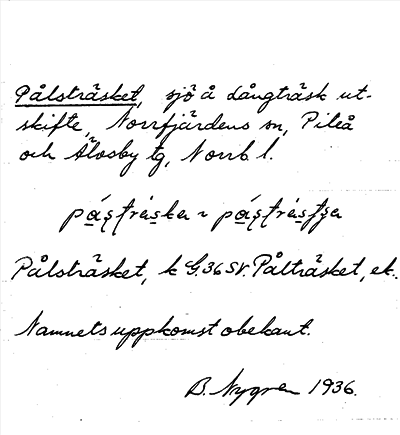 Pålsträsket, sjö å Långträsk ut-
skifte, Norrfjärdens sn, Piteå
och Älvsby tg, Norrb. l.
Pålsträsket, k G. 36 SV. Pålträsket, ek.
Namnets uppkomst obekant.
B. Nygren 1936.